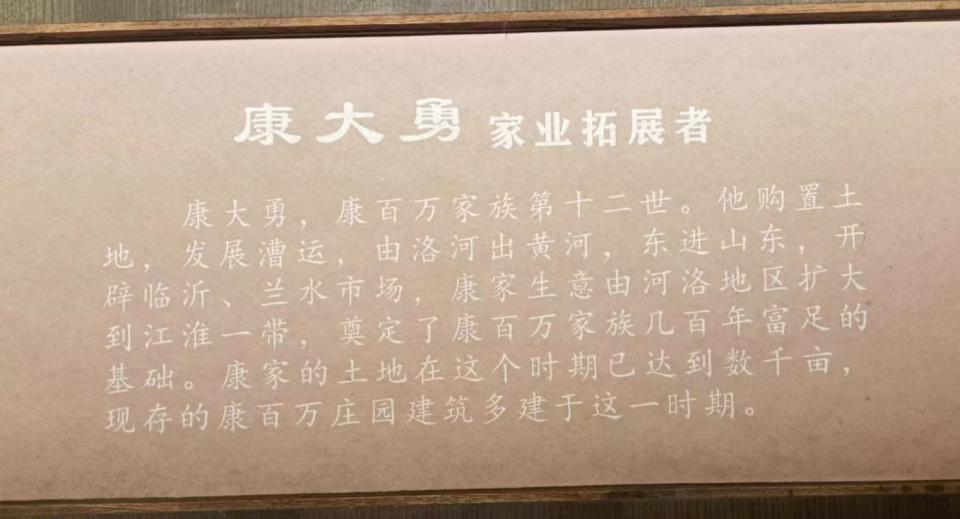 康大勇 家业拓展者
康大勇，康百万家族第十二世。他购置土
地，发展漕运，由洛河出黄河，东进山东，开
辟临沂、兰水市场，康家生意由河洛地区扩大
到江淮一带，奠定了康百万家族几百年富足的
基础。康家的土地在这个时期已达到数千亩，
现存的康百万庄园建筑多建于这一时期。